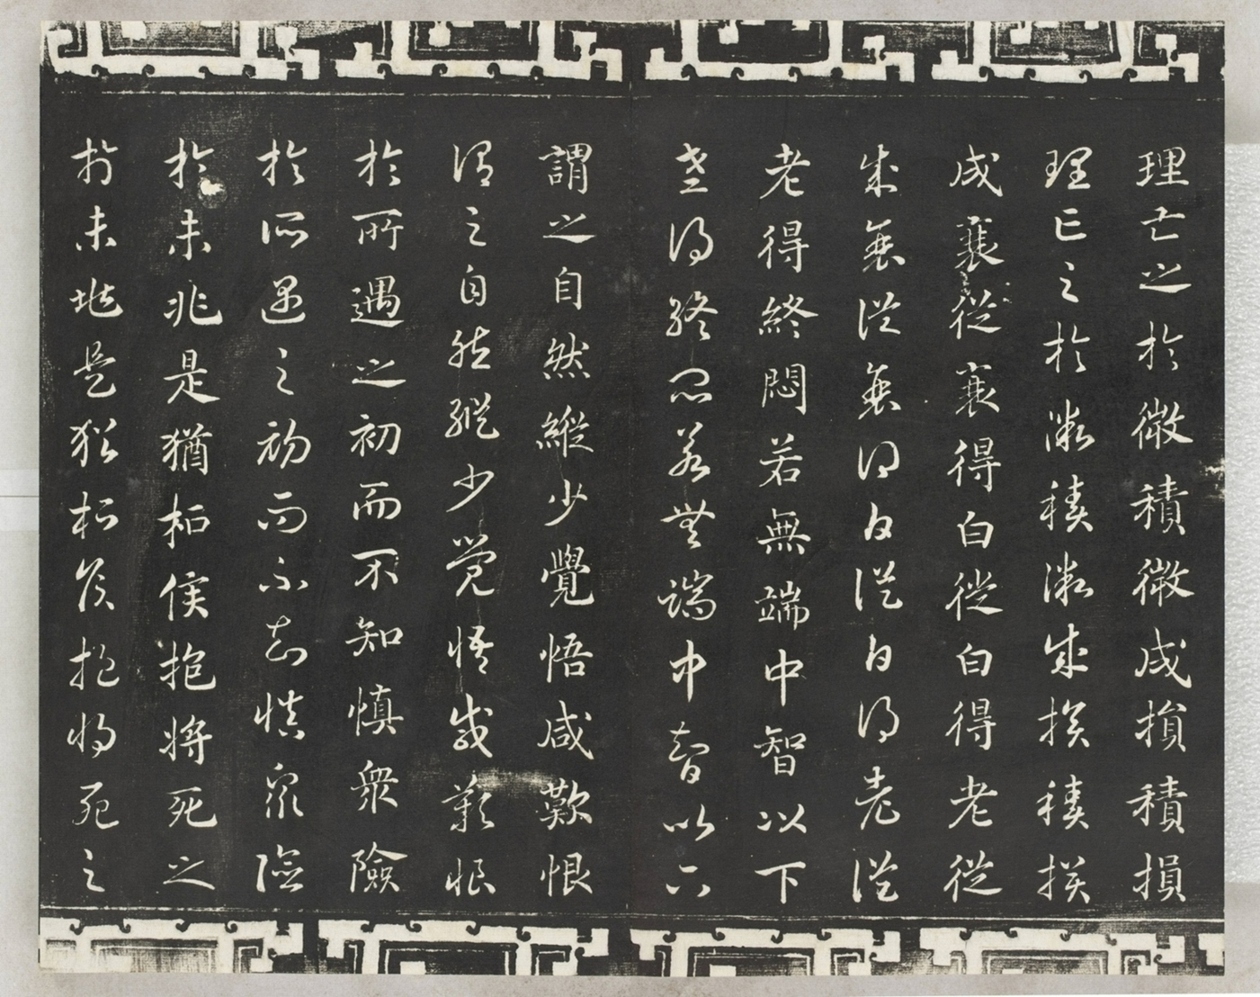 理亡之於微積微成損積損
理亡之於微積微成損積損
成衰從衰得白從白得老從
成衰從衰得白從白得老從
老得終悶若無端中智以下
老得終悶若無端中智以下
謂之自然縱少覺悟咸歎恨
謂之自然縱少覺悟咸歎恨
於所遇之初而不知慎衆險
於所遇之初而不知慎衆險
於未兆是猶桓侯抱將死之
於未兆是猶桓侯抱將死之